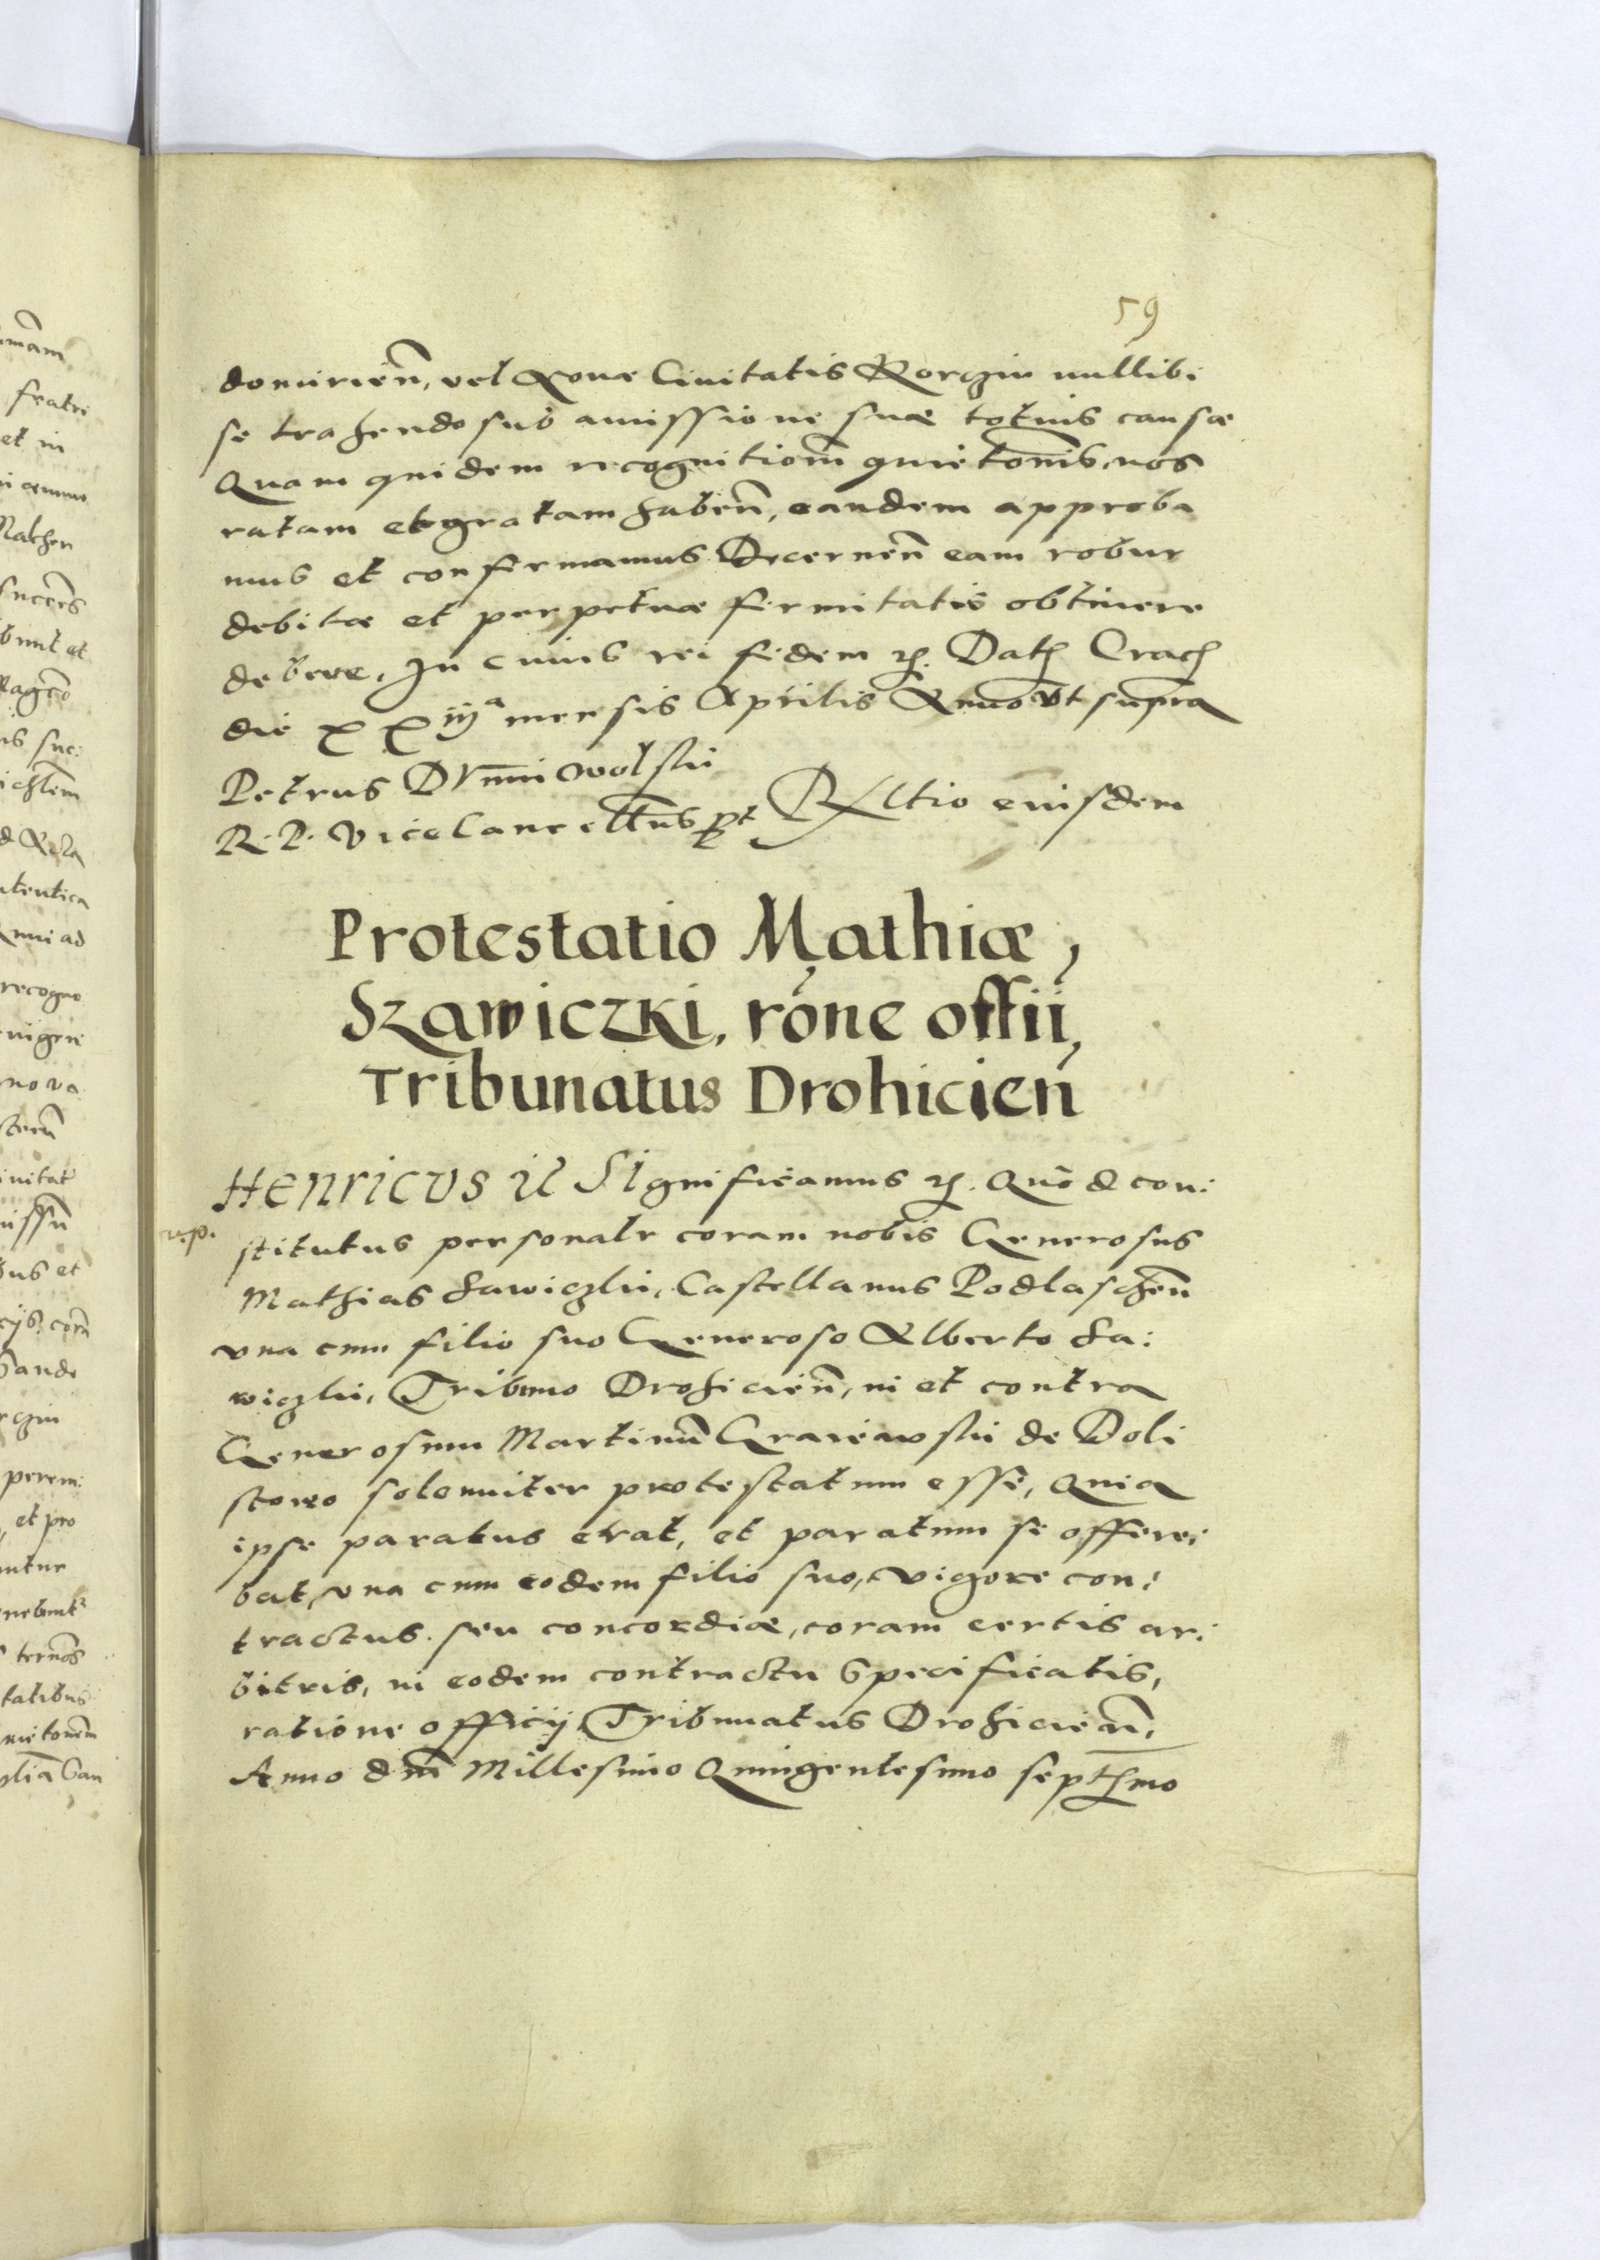 59
domirien̄, vel Nouæ Ciuitatis Korczin nullibi
se trahendo sub amissione suæ totius causæ
Quam quidem recognitiom̄ quietōnis, nos
ratam et gratam haben̄, eandem approba
mus et confirmamus Decernen̄ eam robur
debitæ et perpetuæ firmitatis obtinere
debere, In cuius rei fidem etc. Dat Crac
die XXiijª mensis Aprilis Anno vt supra
Petrus Dunniowolski
R. P. Vicecancellrius sst Rltio eiusdem
Protestatio Mathiæ,
Szawiczki, rōne offii,
Tribunatus Drohicien̄
Henricus ił Significamus etc. Quod con:
v.p.
stitutus personalr coram nobis Generosus
Mathias Sawiczki, Castellanus Podlaschen̄
vna cum filio suo Generoso Alberto Sa:
wiczki, Tribuno Drohicien̄, in et contra
Generosum Martinū Graiewski de Doli
stowo solenniter protestatum esse, Quia
ipse paratus erat, et paratum se offere:
bat, vna cum eodem filio suo, vigore con:
tractus. seu concordiæ, coram certis ar:
bitris, in eodem contractu specificatis,
ratione officij Tribunatus Drohicien̄,
Anno dn̄i Millesimo Quingentesimo septmo
mam
fratri
et in
Mathen
bunt et
suc:
utentica
recogno
nova
et
ande
perem:
et pro
talibus